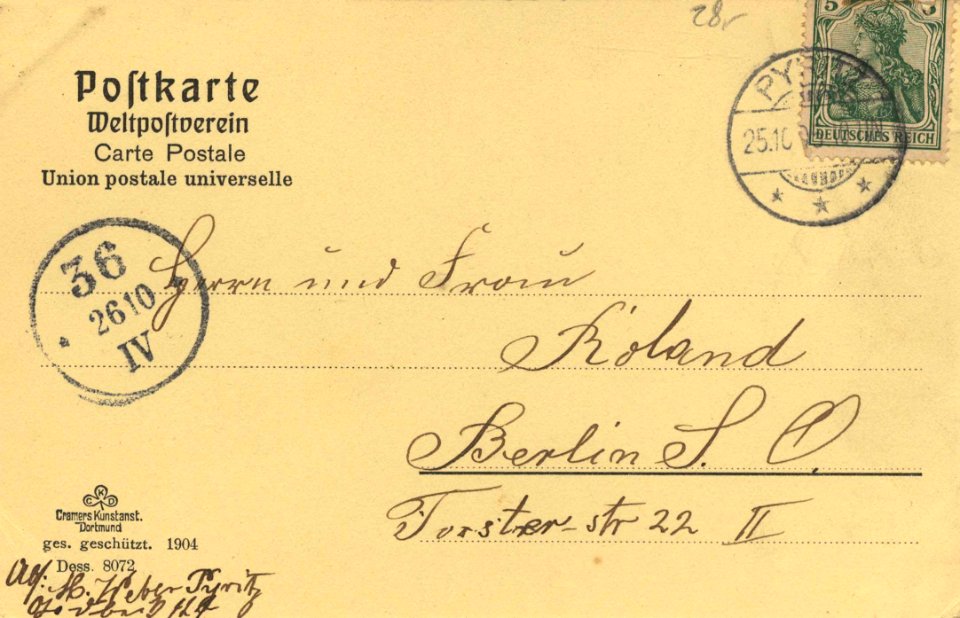 28
5
DEUTSCHES REICH
PYRITZ
25.10
Poſtkarte
Weltpoſtverein
Carte Postale
Union postale universelle
36
26 10
IV
Herrn und Frau
Roland
Berlin S. O.
Forster-str 22 II
CKD
Cramers Kunstanst.
Dortmund
ges. geschützt. 1904
Dess. 8072
M. Weber Pyritz